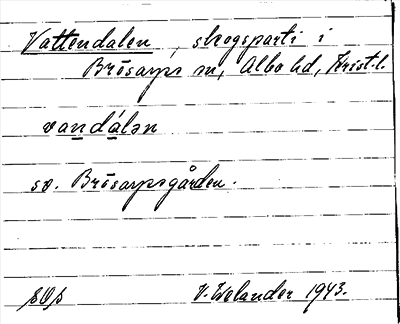 Vattendalen, skogsparti i
Brösarps sn, Albo hd, Krist.l.
vandálən
sv. Brösarpsgården.
V. Welander 1943.